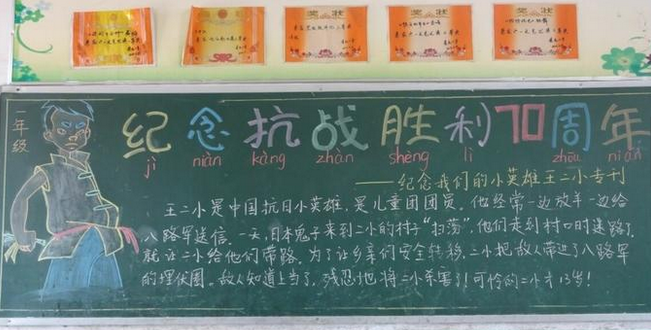 奖状
奖状
奖状
一年级
纪念抗战胜利70周年
jì niàn kàng zhàn shèng lì zhōu nián
——纪念我们的小英雄王二小专刊
王二小是中国抗日小英雄,是儿童团团员。他经常一边放羊一边给
八路军送信。一天,日本鬼子来到二小的村子“扫荡”,他们走到村口时迷路了,
就让二小给他们带路。为了让乡亲们安全转移,二小把敌人带进了八路军
的埋伏圈。敌人知道上当了,残忍地将二小杀害了!可怜的二小才13岁!